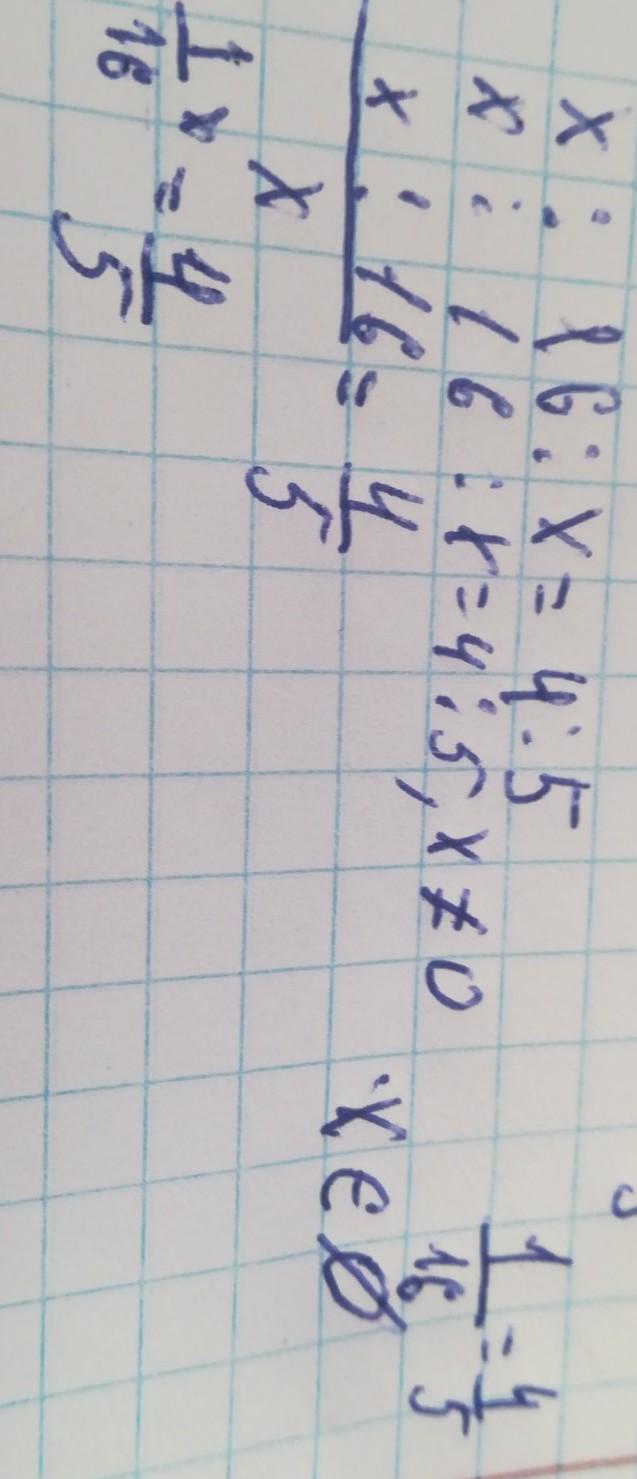 x : 16 : x = 4 : 5
x : 16 : x = 4 : 5, x ≠ 0
x : 16 / x = 4/5
1/16 x = 4/5
1/16 = 4/5
x ∈ ∅